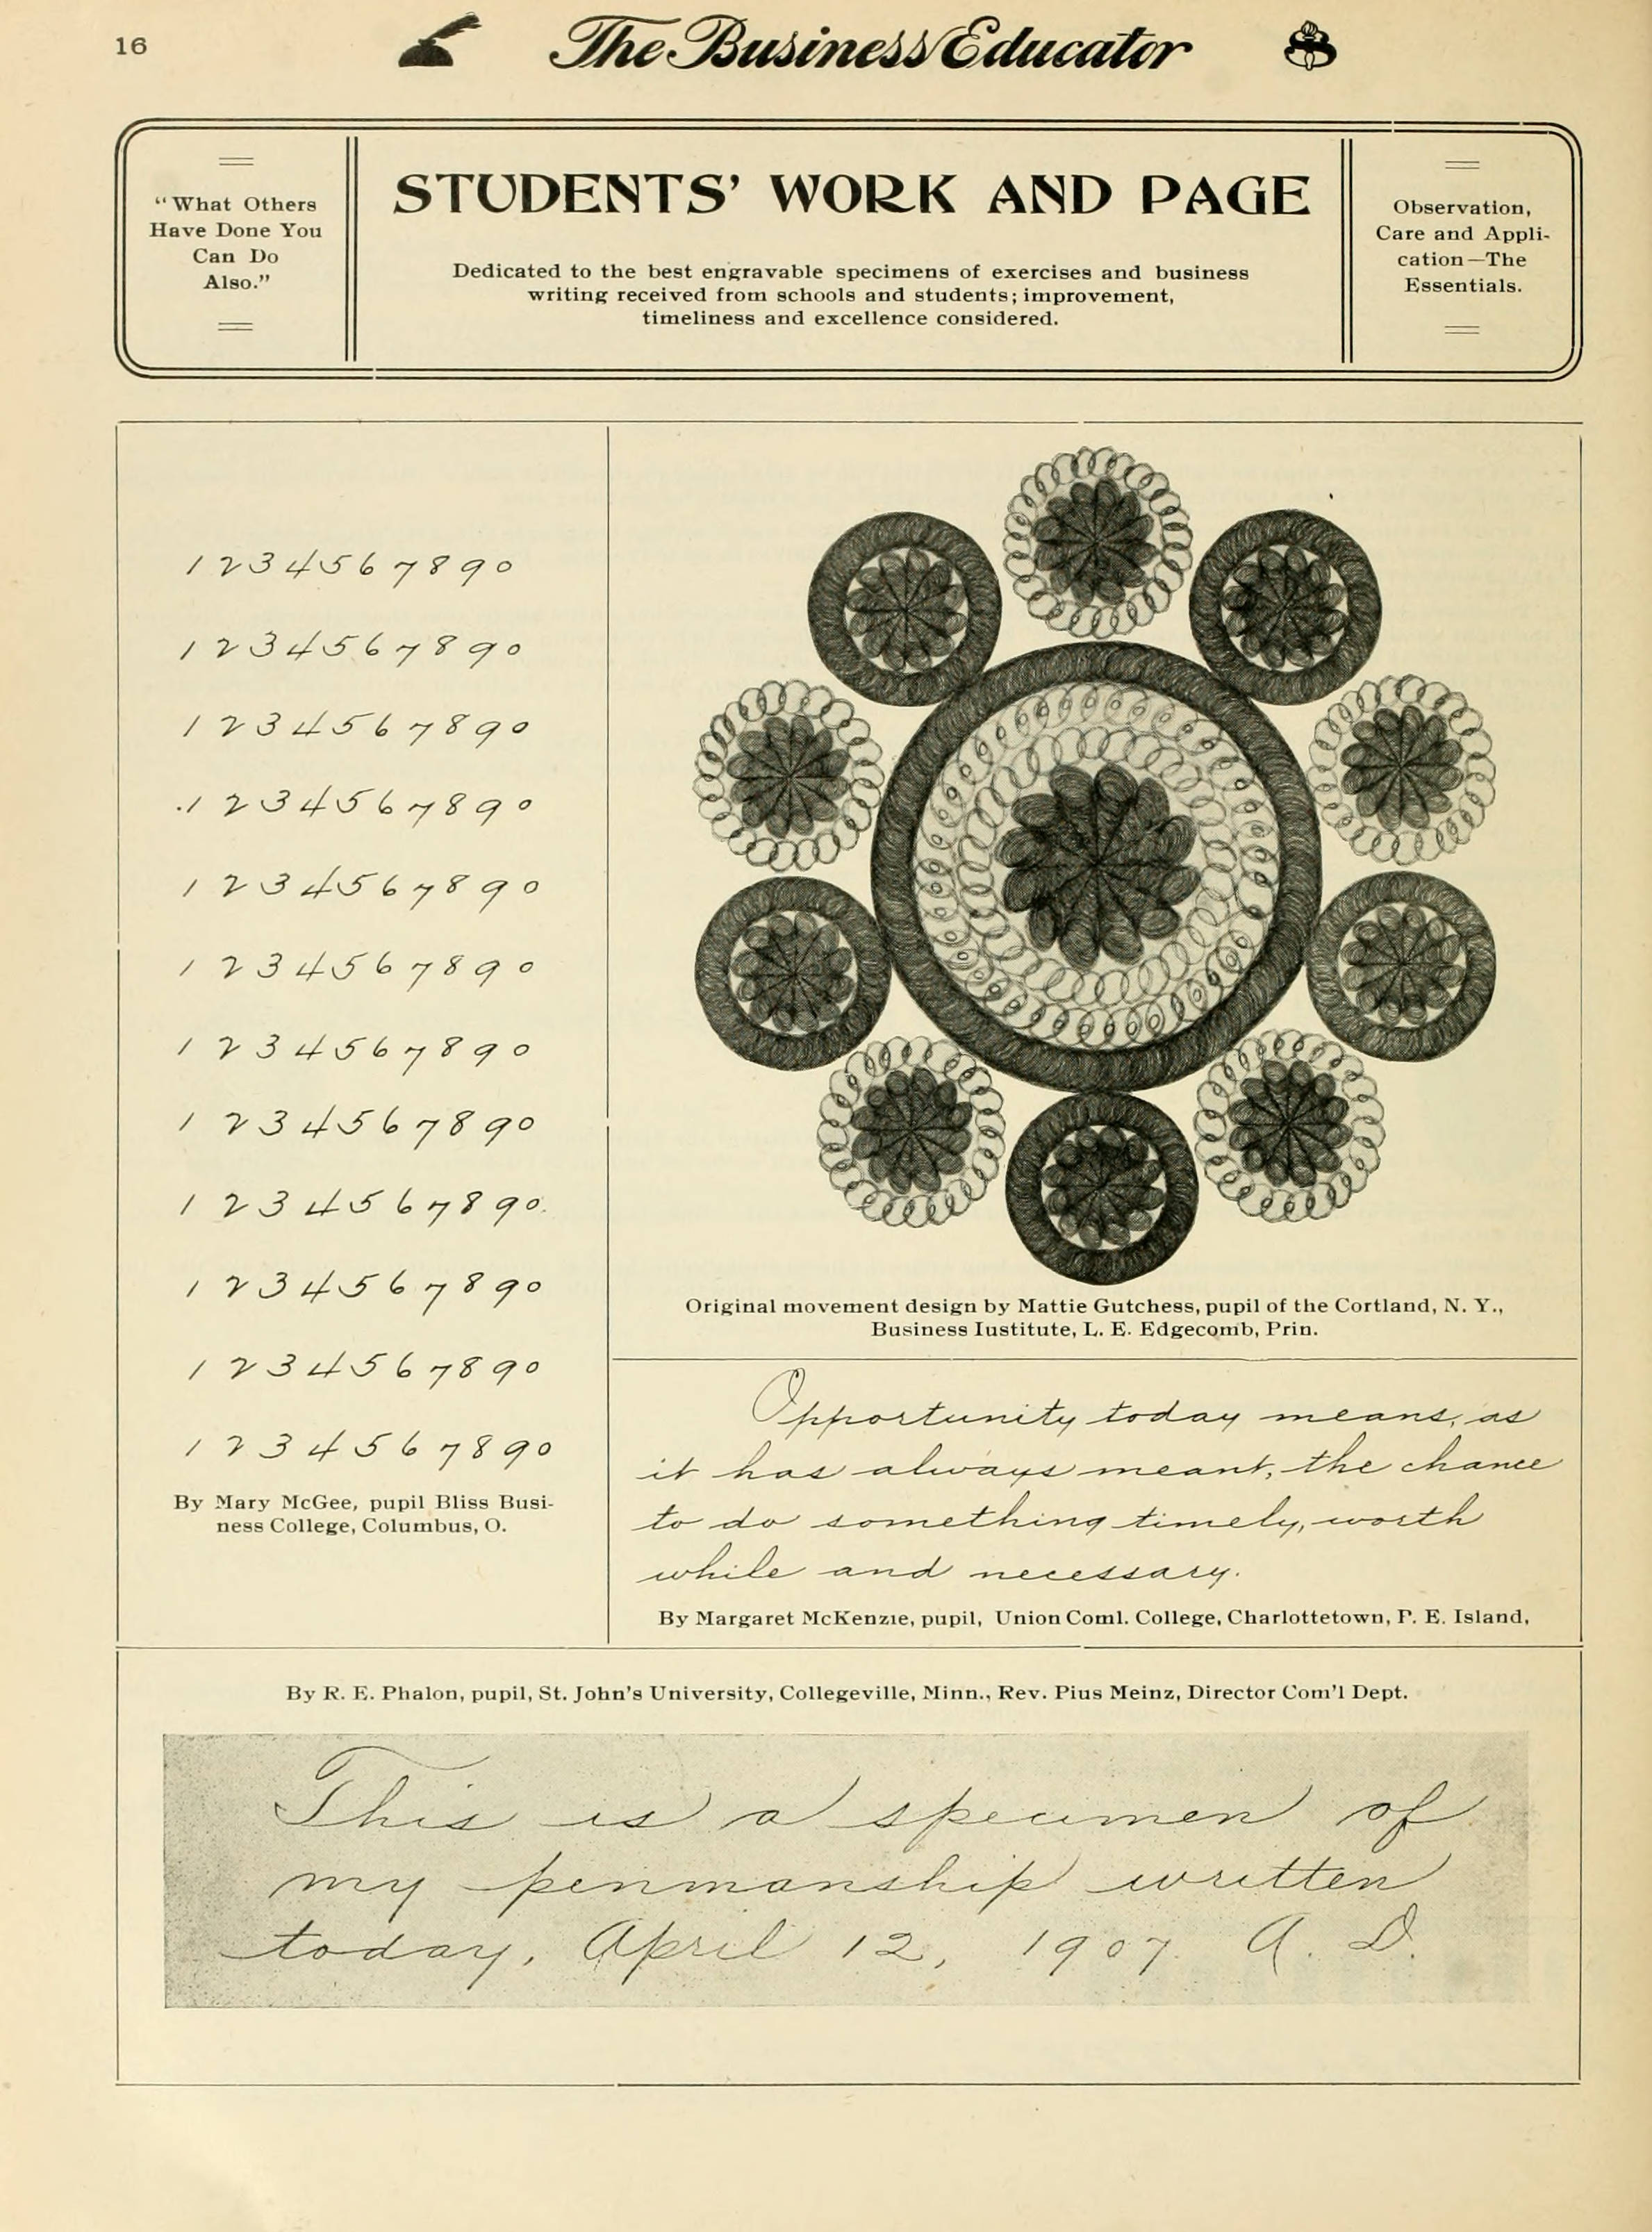 16
The Business Educator
"What Others
Have Done You
Can Do
Also."
STUDENTS' WORK AND PAGE
Dedicated to the best engravable specimens of exercises and business
writing received from schools and students; improvement,
timeliness and excellence considered.
Observation,
Care and Appli-
cation—The
Essentials.
1 2 3 4 5 6 7 8 9 0
1 2 3 4 5 6 7 8 9 0
1 2 3 4 5 6 7 8 9 0
1 2 3 4 5 6 7 8 9 0
1 2 3 4 5 6 7 8 9 0
1 2 3 4 5 6 7 8 9 0
1 2 3 4 5 6 7 8 9 0
1 2 3 4 5 6 7 8 9 0
1 2 3 4 5 6 7 8 9 0
1 2 3 4 5 6 7 8 9 0
1 2 3 4 5 6 7 8 9 0
1 2 3 4 5 6 7 8 9 0
By Mary McGee, pupil Bliss Busi-
ness College, Columbus, O.
Original movement design by Mattie Gutchess, pupil of the Cortland, N. Y.,
Business Iustitute, L. E. Edgecomb, Prin.
Opportunity today means, as
it has always meant, the chance
to do something timely, worth
while and necessary.
By Margaret McKenzie, pupil, Union Coml. College, Charlottetown, P. E. Island,
By R. E. Phalon, pupil, St. John's University, Collegeville, Minn., Rev. Pius Meinz, Director Com'l Dept.
This is a specimen of
my penmanship written
today, April 12, 1907. A. D.